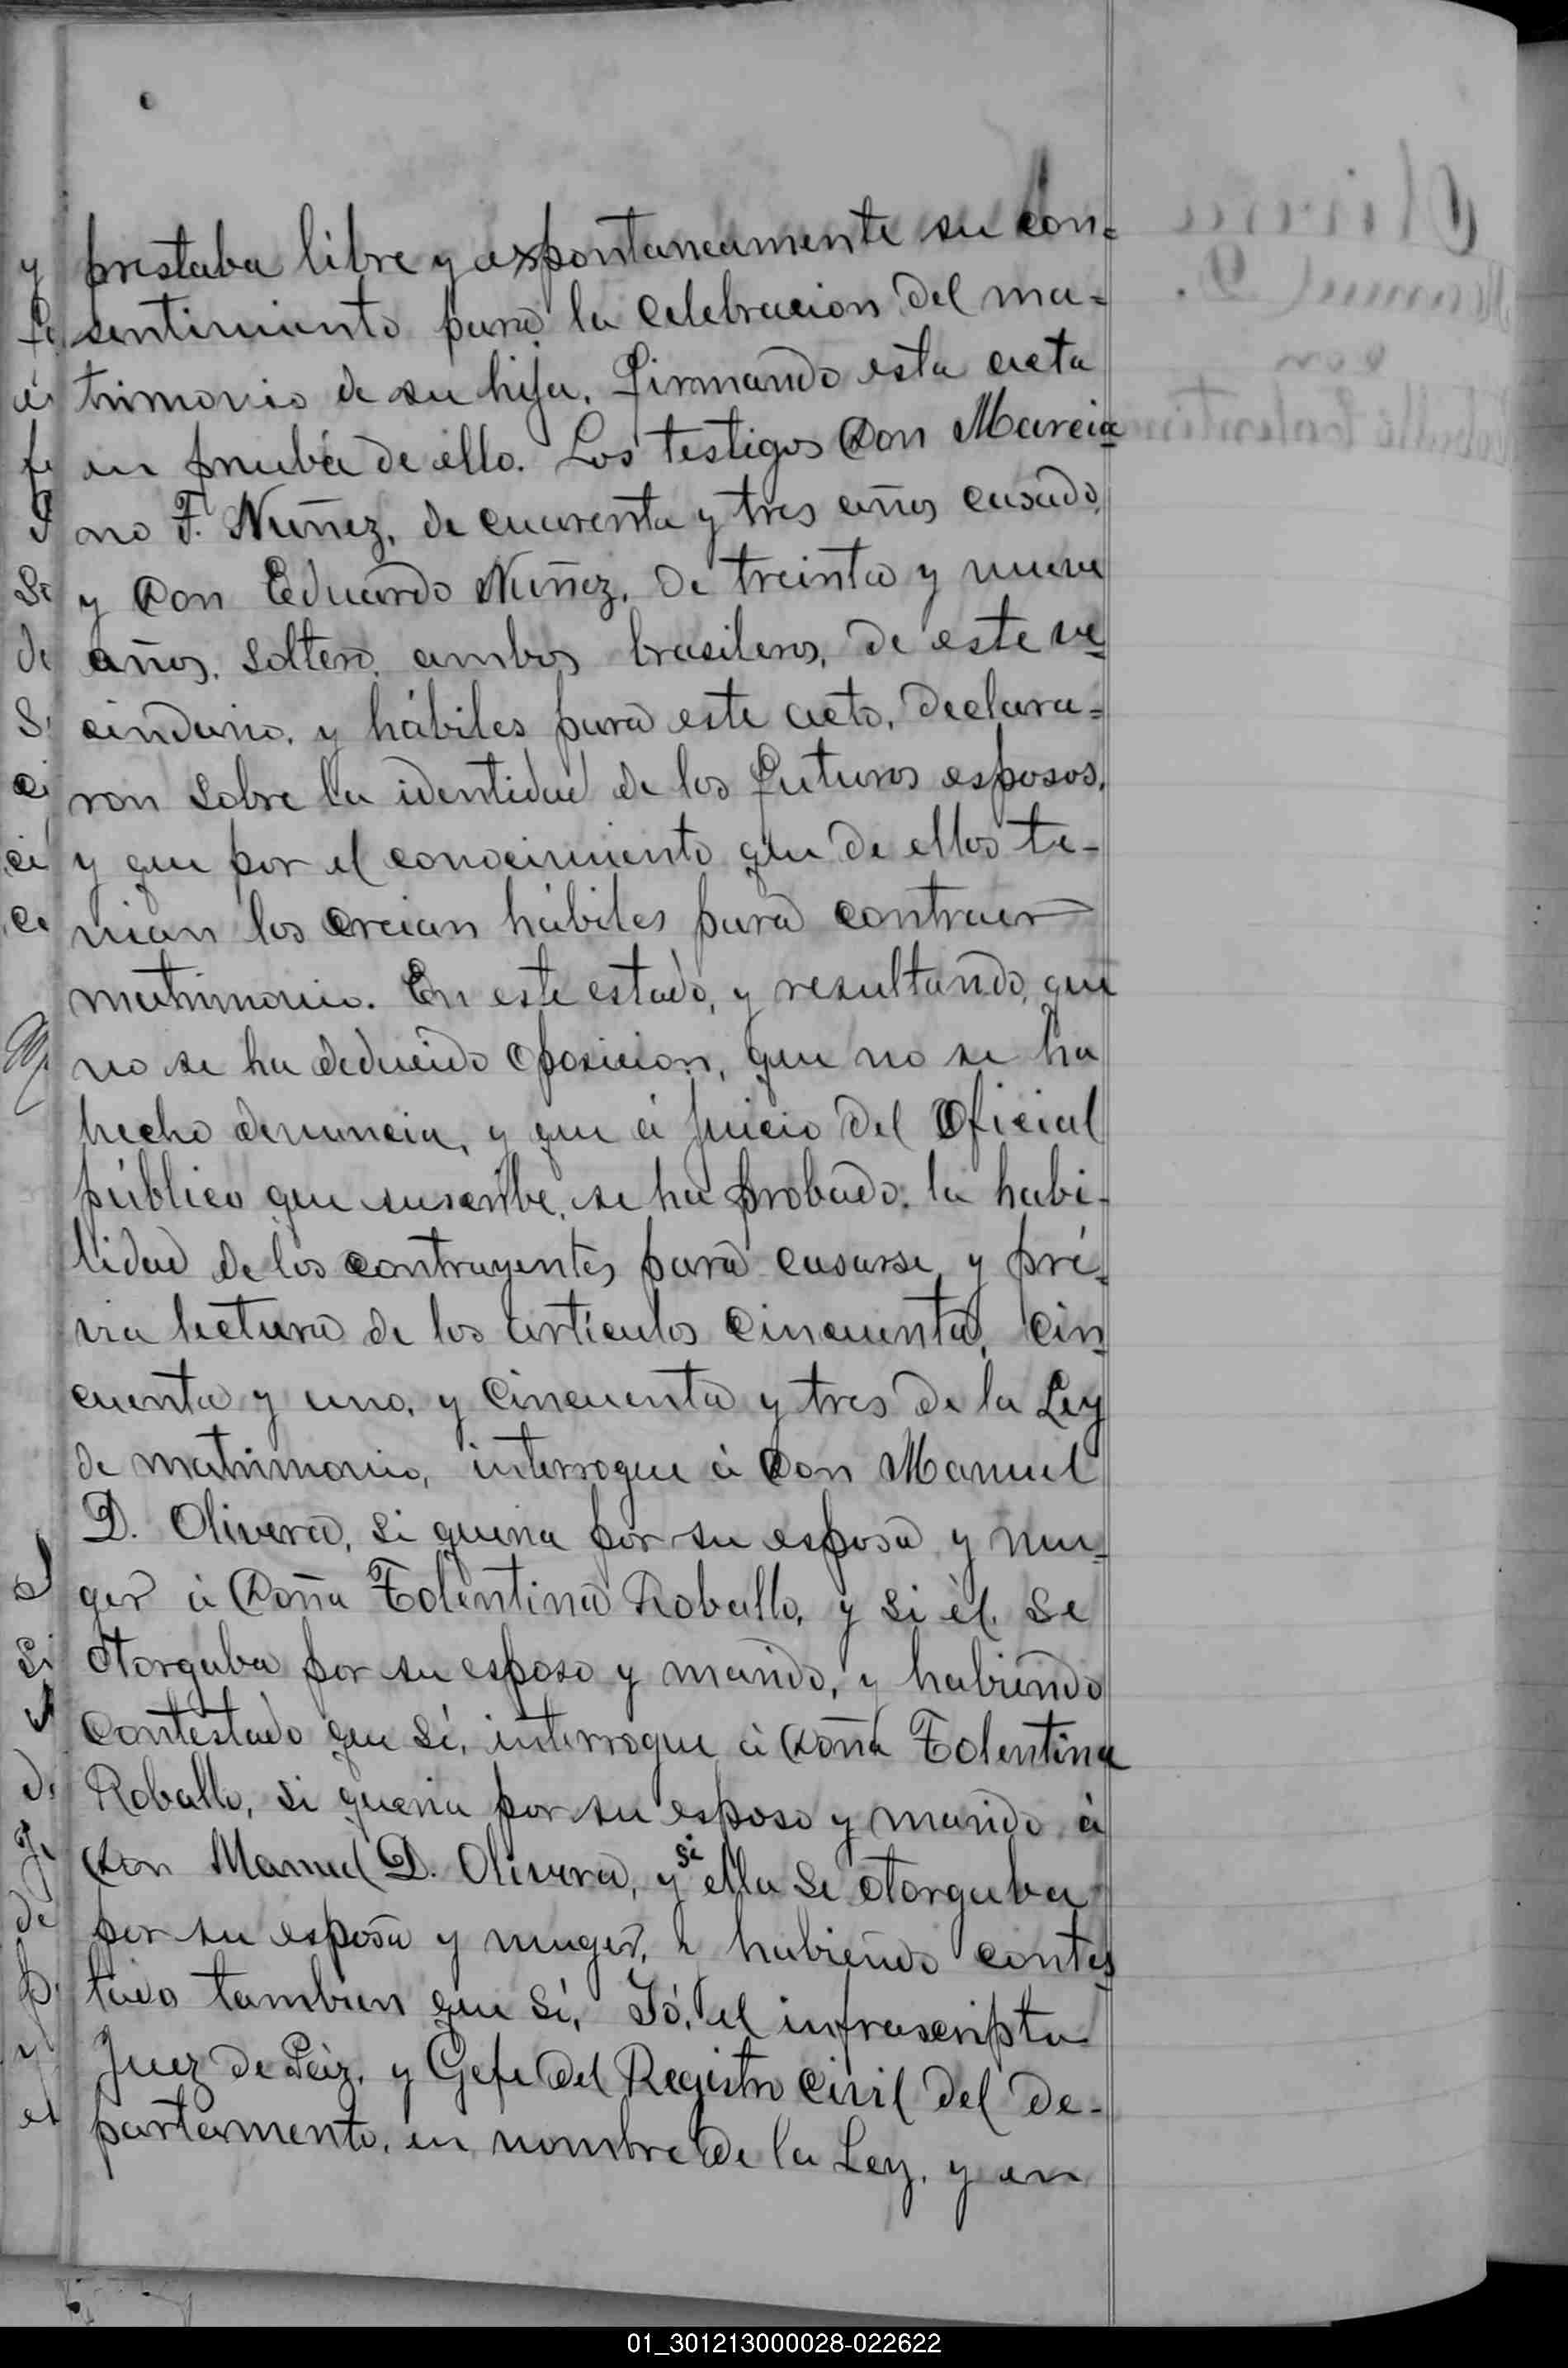 prestaba libre y expontaneamente su con=
sentimiento para la celebracion del ma=
trimonio de su hija, firmando esta acta
en prueba de ello. Los testigos Don Marcia=
no F. Nuñez, de cuarenta y tres años casado,
y Don Eduardo Nuñez, de treinta y nueve
años, soltero, ambos brasileros, de este ve=
cindario, y hábiles para este acto, declara=
ron sobre la identidad de los futuros esposos,
y que por el conocimiento que de ellos te-
nian los creian hábiles para contraer
matrimonio. En este estado, y resultando que
no se ha deducido oposicion, que no se ha
hecho denuncia, y que á juicio del Oficial
público que suscribe, se ha probado, la habi-
lidad de los contrayentes para casarse, y pré-
via lectura de los artículos cincuenta, cin=
cuenta y uno, y cincuenta y tres de la Ley
de matrimonio, interrogue á Don Manuel
D. Olivera, si queria por su esposa y mu=
ger á Doña Tolentina Roballo, y si él se
otorgaba por su esposo y marido, y habiendo
contestado que sí, interrogue á Doña Tolentina
Roballo, si queria por su esposo y marido á
Don Manuel D. Olivera, y si ella se otorgaba
por su esposa y muger, é habiendo contes=
tado tambien que sí, Yó, el infrascripto
Juez de Páz, y Gefe del Registro Civil del De-
partamento, en nombre de la Ley, y en
01_301213000028-022622